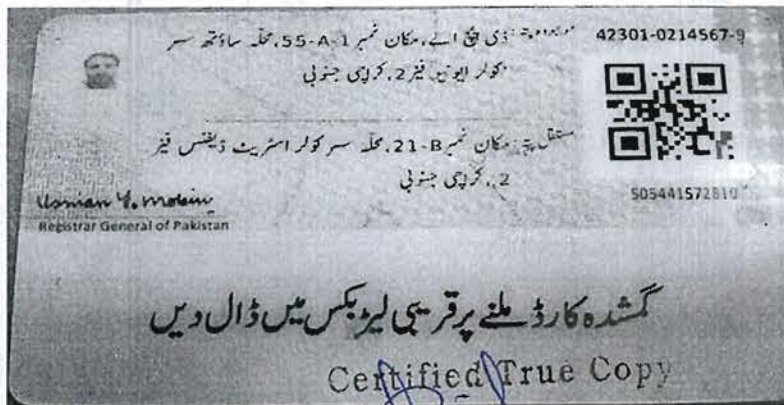 موجودہ پتہ: ڈی ایچ اے، مکان نمبر 55-A-1، محلہ ساؤتھ سر
کولر ایونیو فیز 2، کراچی جنوبی
42301-0214567-9
مستقل پتہ: مکان نمبر 21-B، محلہ سر کولر اسٹریٹ ڈیفنس فیز
2، کراچی جنوبی
505441572810
Usman Y. Mobin
Registrar General of Pakistan
گمشدہ کارڈ ملنے پر قریبی لیٹر بکس میں ڈال دیں
Certified True Copy